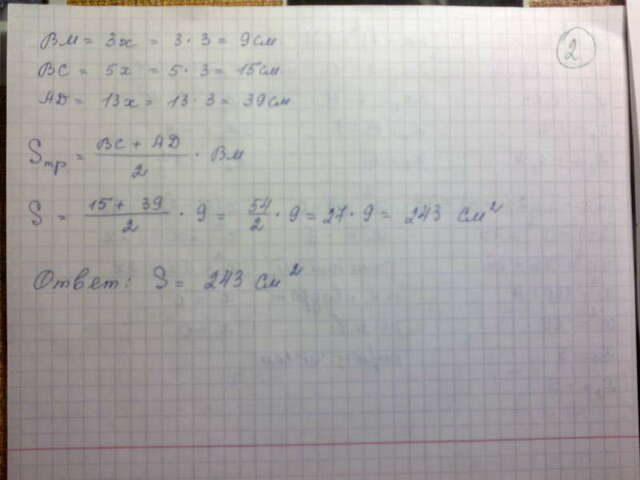 BM = 3x = 3 · 3 = 9 см
BC = 5x = 5 · 3 = 15 см
AD = 13x = 13 · 3 = 39 см
2
Sтр = (BC + AD)/2 · Bм
S = (15 + 39)/2 · 9 = 54/2 · 9 = 27 · 9 = 243 см²
Ответ: S = 243 см²